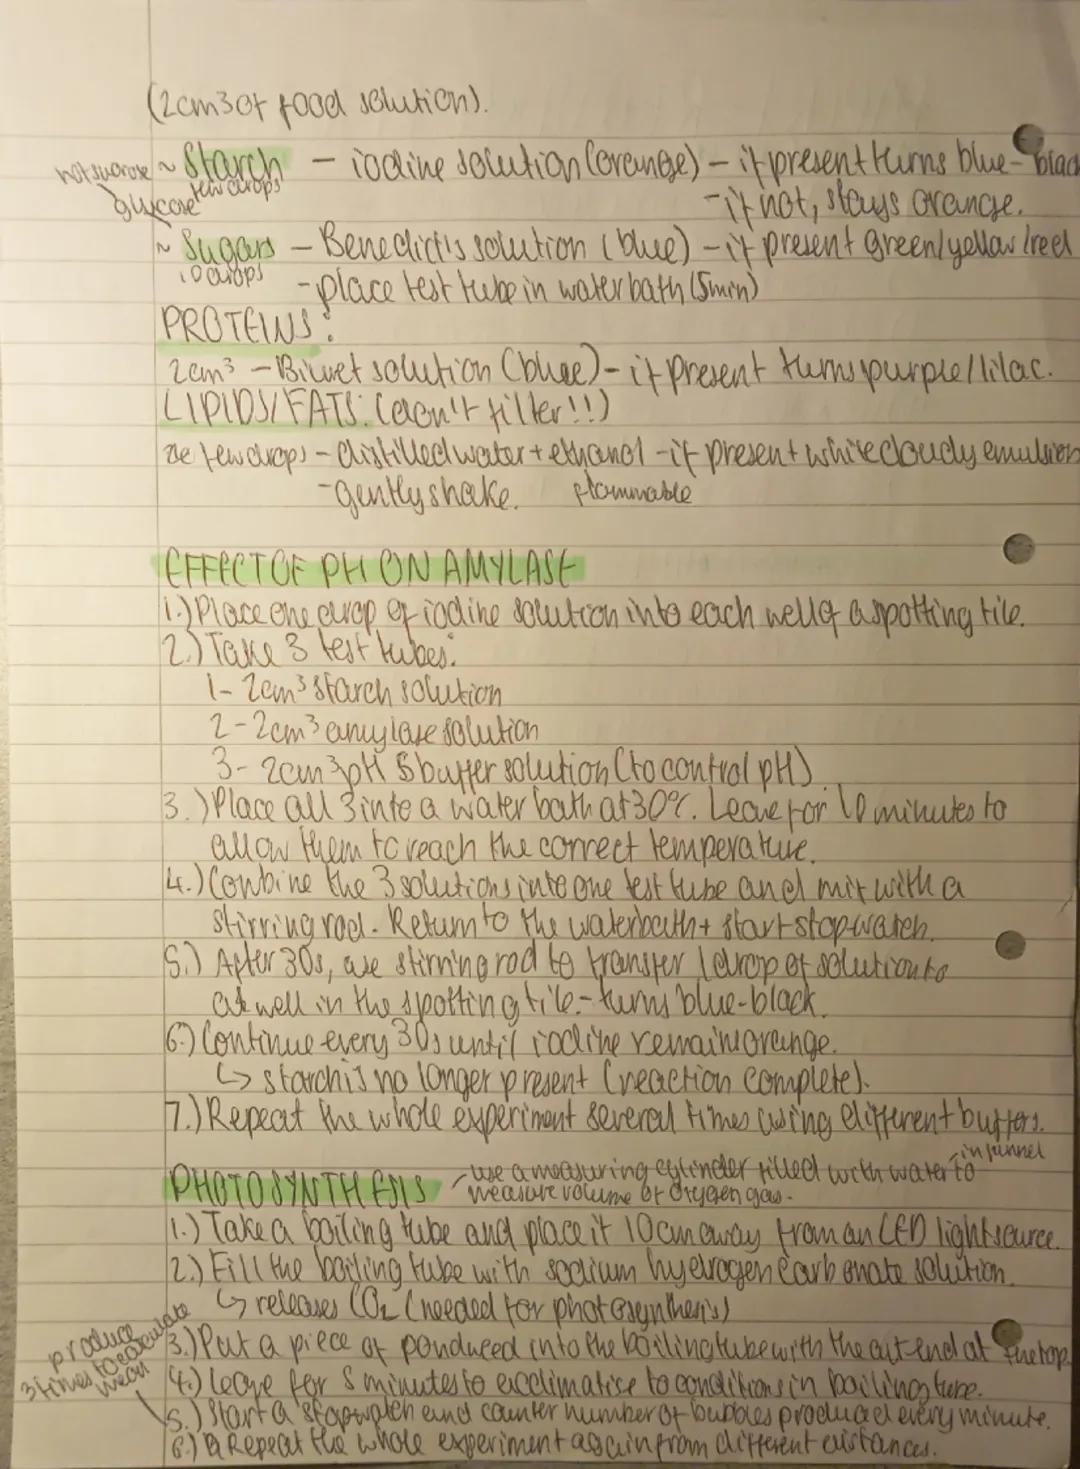 (2cm3 of food solution).
not sucrose ~ Starch - iodine solution (orange) - if present turns blue-black
glucose few drops - if not, stays orange.
~ Sugars - Benedict's solution (blue) - if present green/yellow/red
10 drops - place test tube in water bath (5min)
PROTEINS:
2cm³ - Biuret solution (blue) - if present turns purple/lilac.
LIPIDS/FATS: (don't filter!!)
few drops - distilled water + ethanol - if present white cloudy emulsion
- gently shake. flammable
EFFECT OF PH ON AMYLASE
1.) Place one drop of iodine solution into each well of a spotting tile.
2.) Take 3 test tubes:
1- 2cm³ starch solution
2- 2cm³ amylase solution
3- 2cm³ pH 5 buffer solution (to control pH)
3.) Place all 3 into a water bath at 30°C. Leave for 10 minutes to
allow them to reach the correct temperature.
4.) Combine the 3 solutions into one test tube and mix with a
stirring rod. Return to the waterbath + start stopwatch.
5.) After 30s, use stirring rod to transfer 1 drop of solution to
a well in the spotting tile - turns blue-black.
6.) Continue every 30s until iodine remains orange.
↳ starch is no longer present (reaction complete).
7.) Repeat the whole experiment several times using different buffers.
- in funnel
PHOTOSYNTHESIS - use a measuring cylinder filled with water to
measure volume of oxygen gas.
1.) Take a boiling tube and place it 10cm away from an LED light source.
2.) Fill the boiling tube with sodium hydrogen carbonate solution.
↳ releases CO₂ (needed for photosynthesis)
3.) Put a piece of pondweed into the boiling tube with the cut end at the top.
4.) Leave for 5 minutes to acclimatise to conditions in boiling tube.
produce
3 times to calculate
mean
5.) Start a stopwatch and counter number of bubbles produced every minute.
6.) Repeat the whole experiment again from different distances.